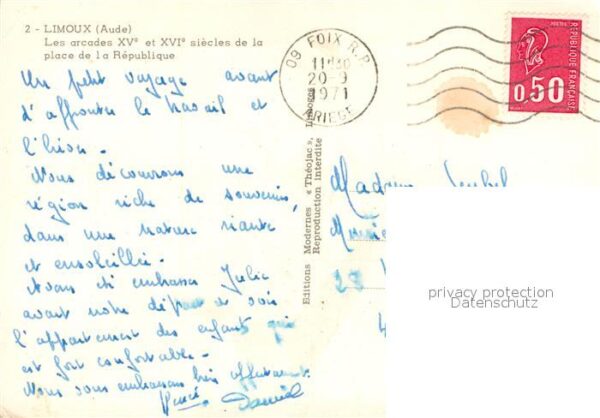 2 - LIMOUX (Aude)
Les arcades XVe et XVIe siècles de la
place de la République
Un petit voyage avant
d'affronter le travail et
l'hiver -
Nous découvrons une
région riche de souvenirs,
dans une nature riante
et ensoleillée -
Avons été embrasser Julie
avant notre départ ce soir
l'appartement des enfants qui
est fort confortable -
Nous vous embrassons bien affectueus.
Daniel
Editions Modernes « Théojac », Limoges
Reproduction interdite
09 FOIX R.P.
11H30
20-9
1971
ARIEGE
POSTES
RÉPUBLIQUE FRANÇAISE
0,50
Madame
privacy protection
Datenschutz